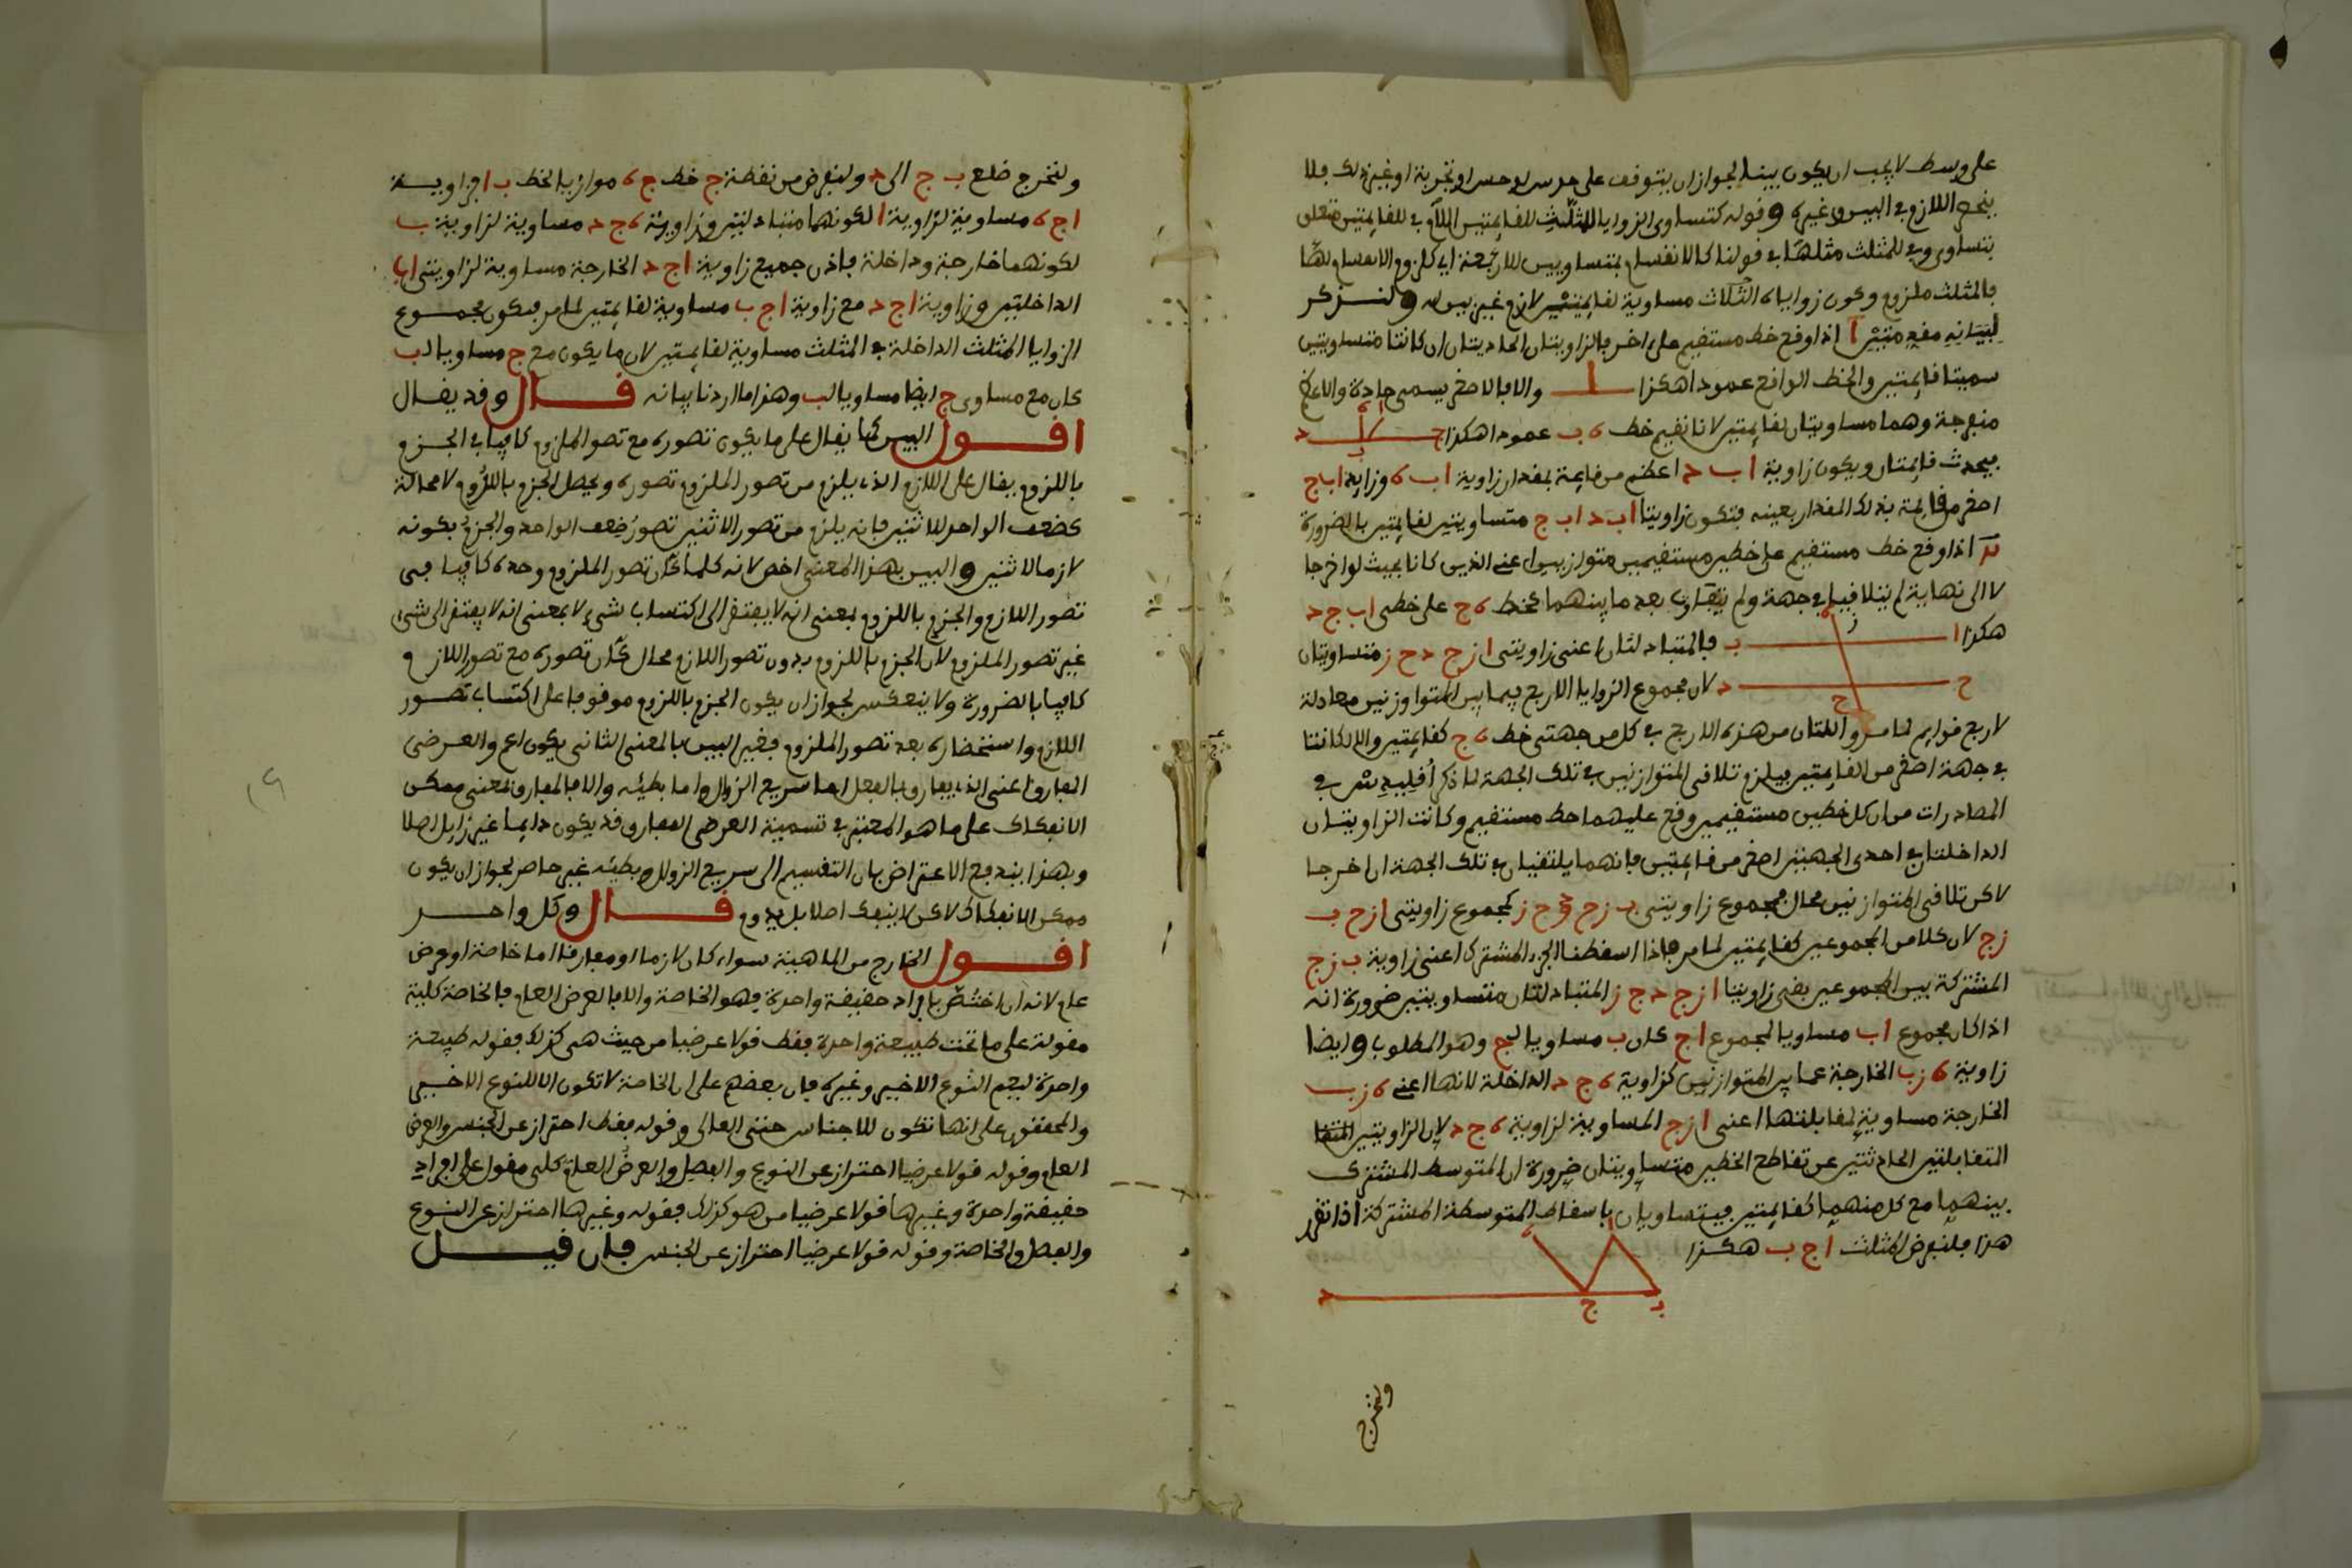 على وسط لا يجب ان يكون بينا لجواز ان يتوقف على حدس او حس او تجربة او غير ذلك فلا
ينحصر اللازم في البين وغيره وقوله كتساوى الزوايا للثلث للقايمتين اللام في للقايمتين متعلق
بتساوى وفي للمثلث مثلها في قولنا كالانقسام بمتساويين للاربعة اي كلزوم الانقسام لها
فالمثلث ملزوم وكون زواياه الثلاث مساوية لقايمتين لازم غير بين له ولنذكر
لبيانه مقدمتين ا اذا وقع خط مستقيم على اخر فالزاويتان الحاديثتان ان كانتا متساويتين
سميتا قايمتين والخط الواقع عمودا هكذا والا فالاصغر يسمى حادة والاعظم
منفرجة وهما مساويتان لقايمتين لانا نقيم خط ه ب عمودا هكذا ج د
فيحدث قايمتان ويكون زاوية ا ب د اعظم من قايمة بمقدار زاوية ا ب ه وزاوية ا ب ج
اصغر من قايمة بذلك المقدار بعينه فتكون زاويتا ا ب د ا ب ج متساويتين لقايمتين بالضرورة
ب اذا وقع خط مستقيم على خطين مستقيمين متوازيين اعنى الذين كانا بحيث لو اخرجا
لا الى نهاية لم يتلاقيا في جهة ولم يتقارب بعد ما بينهما كخط ه ح على خطى ا ب ج د
هكذا ا ب فالمتبادلتان اعنى زاويتى ا ز ح د ح ز متساويتان
ج د لان مجموع الزوايا الاربع فيما بين المتوازيين معادلة
لاربع قوايم لما مر واللتان من هذه الاربع في كل من جهتى خط ه ح كقايمتين والا لكانتا
في جهة اصغر من القايمتين فيلزم تلاقى المتوازيين في تلك الجهة لما ذكر اقليدس في
المصادرات من ان كل خطين مستقيمين وقع عليهما خط مستقيم وكانت الزاويتان
الداخلتان في احدى الجهتين اصغر من قايمتين فانهما يلتقيان في تلك الجهة ان اخرجا
لاكن تلاقى المتوازيين محال فمجموع زاويتى ب ز ح د ح ز كمجموع زاويتى ا ز ح ب
ز ح لان كلا من المجموعين كقايمتين لما مر فاذا اسقطنا الجزء المشترك اعنى زاوية ب ز ح
المشتركة بين المجموعين بقى زاويتا ا ز ح د ح ز المتبادلتان متساويتين ضرورة انه
اذا كان مجموع ا ب مساويا لمجموع ا ج كان ب مساويا لج وهو المطلوب وايضا
زاوية ه ز ب الخارجة عما بين المتوازيين كزاوية ه ح د الداخلة لانها اعنى ه ز ب
الخارجة مساوية لمقابلتها اعنى ا ز ح المساوية لزاوية ه ح د لان الزاويتين المتقا
المتقابلتين الحادثتين عن تقاطع الخطين متساويتان ضرورة ان المتوسط المشترك
بينهما مع كل منهما كقايمتين فيتساويان باسقاط المتوسطة المشتركة اذا تقرر
هذا فلنفرض المثلث ا ج ب هكذا
ا ه
د ج ب
ونخرج
ولنخرج ضلع ب ج الى د ولنفرض من نقطة ج خط ج ه موازيا لخط ب ا فزاوية
ا ج ه مساوية لزاوية ا لكونهما متبادلتين وزاوية ه ج د مساوية لزاوية ب
لكونهما خارجة وداخلة فاذن جميع زاوية ا ج د الخارجة مساوية لزاويتى ا ب
الداخلتين وزاوية ا ج د مع زاوية ا ج ب مساوية لقايمتين لما مر فيكون مجموع
الزوايا المثلث الداخلة في المثلث مساوية لقايمتين لان ما يكون مع ج مساويا لب
كان مع مساوى ج ايضا مساويا لب وهذا ما اردنا بيانه قال وقد يقال
اقول البين كما يقال على ما يكون تصوره مع تصور الملزوم كافيا في الجزم
باللزوم يقال على اللازم الذى يلزم من تصور الملزوم تصوره ويحصل الجزم باللزوم لا محالة
كضعف الواحد للاثنين فانه يلزم من تصور الاثنين تصور ضعف الواحد والجزم بكونه
لازما للاثنين والبين بهذا المعنى اخص لانه كلما كان تصور الملزوم وحده كافيا فى
تصور اللازم والجزم باللزوم بمعنى انه لا يفتقر الى اكتساب شىء لا بمعنى انه لا يفتقر الى شى
غير تصور الملزوم لان الجزم باللزوم بدون تصور اللازم محال كان تصوره مع تصور اللازم
كافيا بالضرورة ولا ينعكس لجواز ان يكون الجزم باللزوم موقوفا على اكتساب تصور
اللازم واستحضاره بعد تصور الملزوم فغير البين بالمعنى الثانى يكون اعم والعرضى
المفارق اعنى الذى يفارق بالفعل اما سريع الزوال واما بطيئه والا فالمفارق بمعنى ممكن
الانفكاك على ما هو المعتبر في تسمية العرضى المفارق قد يكون دايما غير زايل اصلا
وبهذا يندفع الاعتراض بان التقسيم الى سريع الزوال وبطيئه غير حاصر لجواز ان يكون
ممكن الانفكاك لاكن لا ينفك اصلا بل يدوم قال وكل واحد
اقول الخارج من الماهية سواء كان لازما او مفارقا اما خاصة او عرض
عام لانه ان اختص بافراد حقيقة واحدة فهو الخاصة والا فالعرض العام فالخاصة كلية
مقولة على ما تحت طبيعة واحدة فقط قولا عرضيا من حيث هى كذلك فقوله طبيعة
واحدة ليعم النوع الاخير وغيره فان بعضهم على ان الخاصة لا تكون الا للنوع الاخير
والمحققون على انها تكون للاجناس حتى العالى وقوله فقط احتراز عن الجنس والعرض
العام وقوله قولا عرضيا احتراز عن النوع والفصل والعرض العام كلى مقول على افراد
حقيقة واحدة وغيرها قولا عرضيا من هو كذلك فقوله وغيرها احتراز عن النوع
والفصل والخاصة وقوله قولا عرضيا احتراز عن الجنس فان قيل